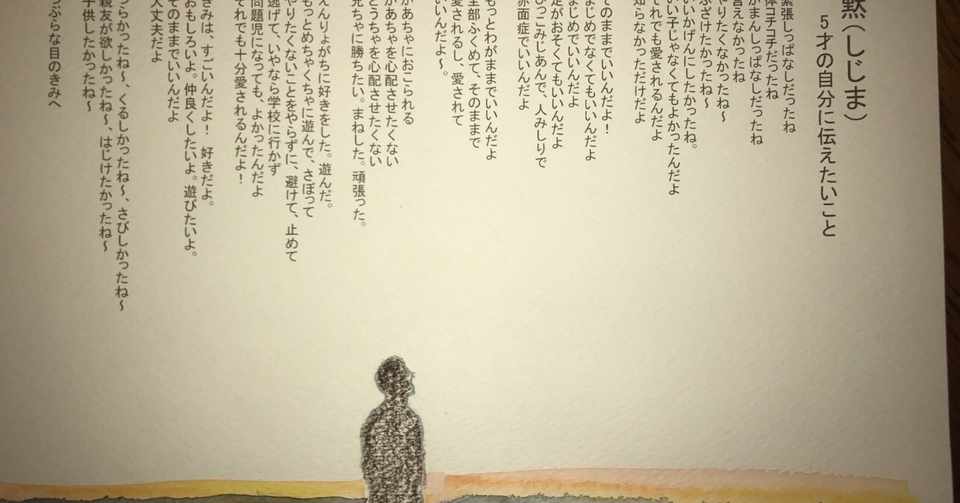 黙(しじま)
5才の自分に伝えたいこと
緊張しっぱなしだったね
体コチコチだったね
がまんしっぱなしだったね
言えなかったね
やりたくなかったね〜
ふざけたかったね〜
いいかげんにしたかったね。
いい子じゃなくてもよかったんだよ
それでも愛されるんだよ
知らなかっただけだよ
そのままでいいんだよ!
まじめでなくてもいいんだよ
まじめでいいんだよ
足がおそくてもいいんだよ
ひっこみじあんで、人みしりで
赤面症でいいんだよ
もっとわがままでいいんだよ
全部ふくめて、そのままで
愛されるし、愛されて
いいんだよ〜。
かあちゃにおこられる
かあちゃを心配させたくない
とうちゃを心配させたくない
兄ちゃに勝ちたい。まねした。頑張った。
えんりょがちに好きをした。遊んだ。
もっとめちゃくちゃに遊んで、さぼって
やりたくないことをやらずに、避けて、止めて
逃げて、いやなら学校に行かず
問題児になっても、よかったんだよ
それでも十分愛されるんだよ!
きみは、すごいんだよ! 好きだよ。
おもしろいよ。仲良くしたいよ。遊びたいよ。
そのままでいいんだよ
大丈夫だよ
つらかったね〜、くるしかったね〜、さびしかったね〜
親友が欲しかったね〜、はじけたかったね〜
子供したかったね〜
つぶらな目のきみへ